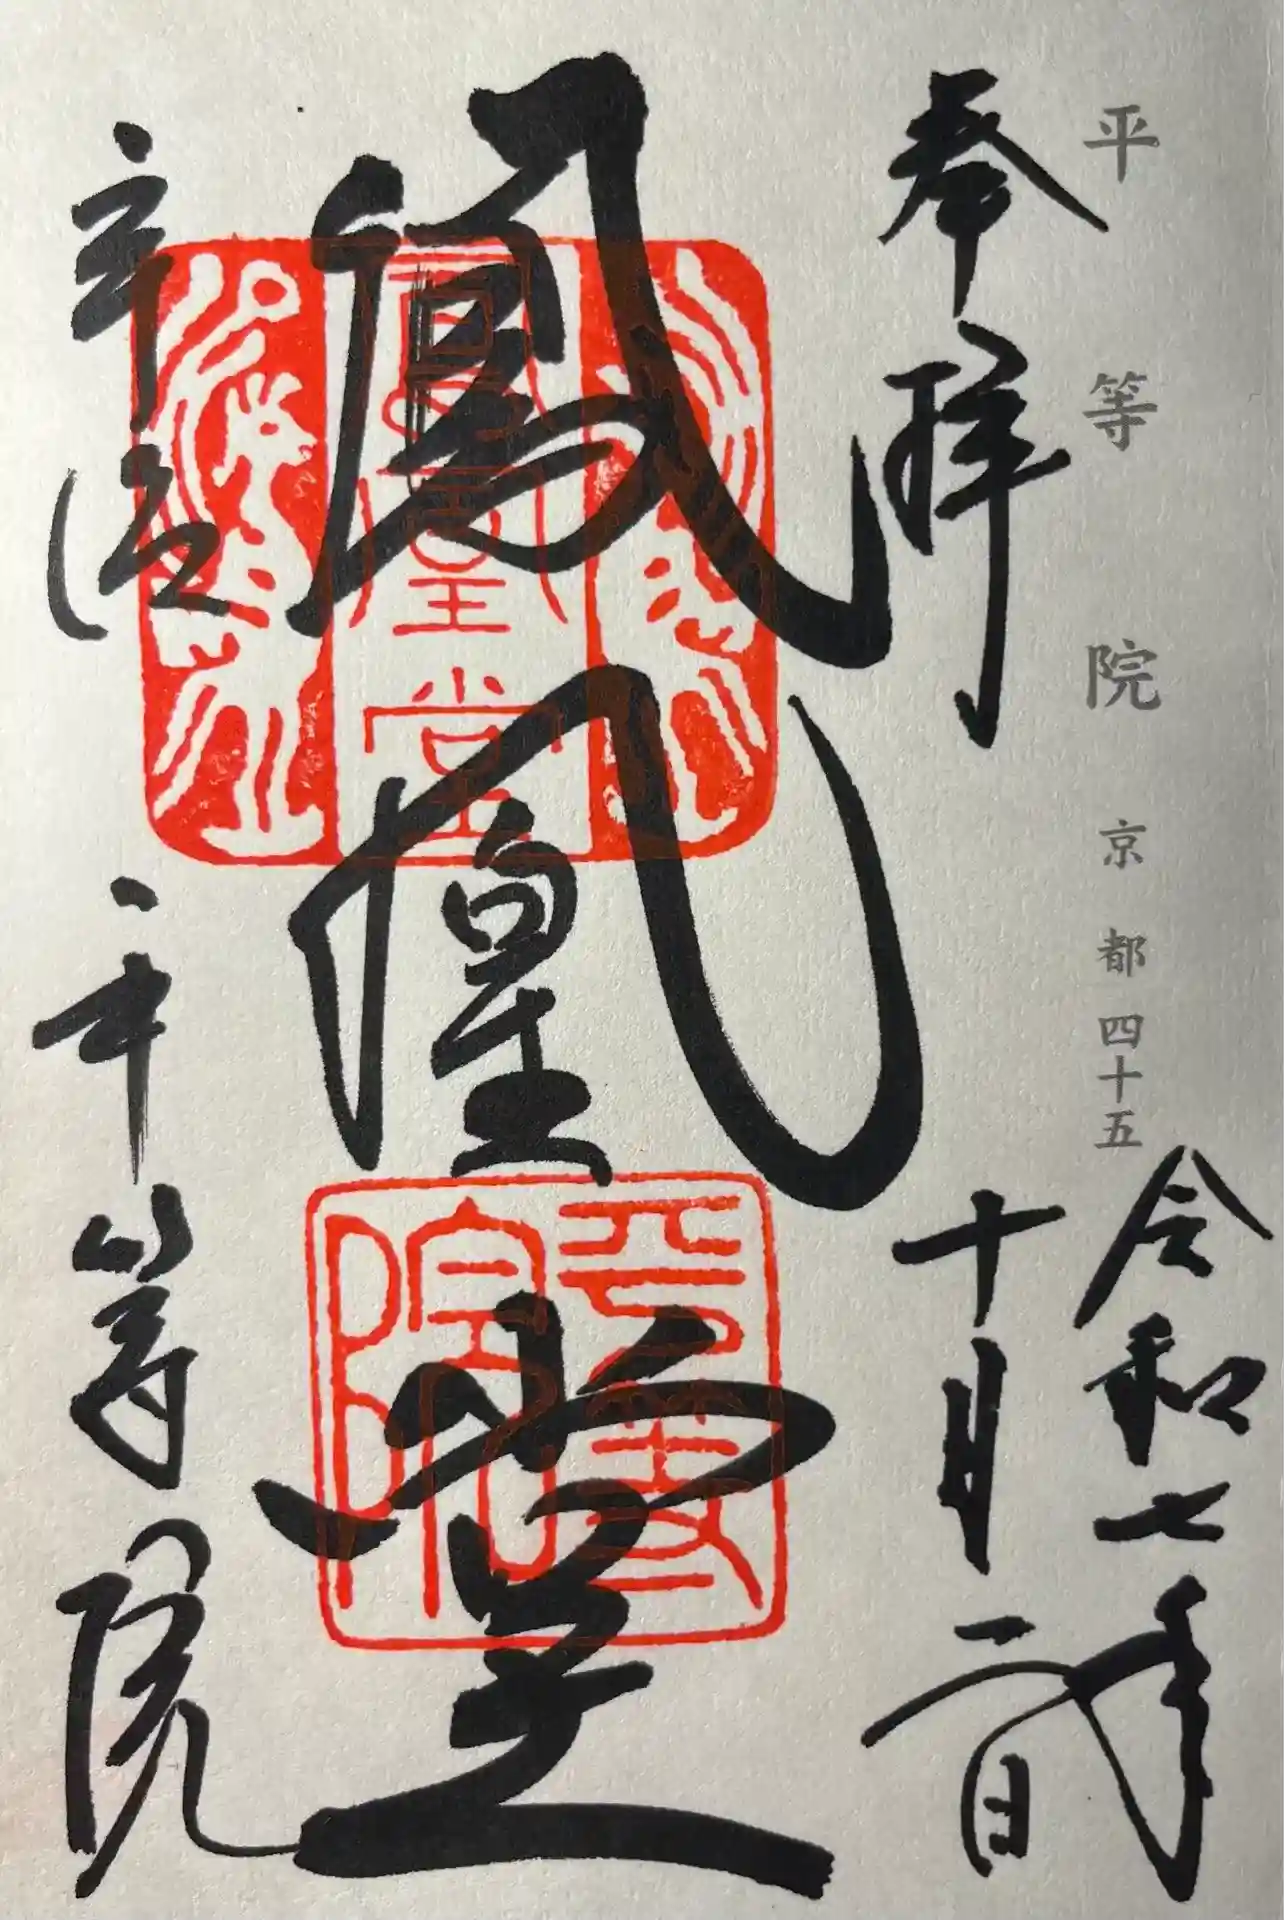 平等院 京都四十五
令和七年
奉拝 十月二日
鳳凰堂
鳳凰堂
平等院
宇治 平等院